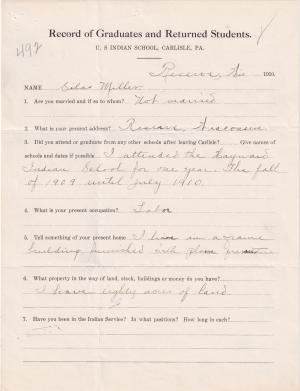 492
Record of Graduates and Returned Students.
U. S INDIAN SCHOOL, CARLISLE, PA.
Reserve, Wis 1910.
NAME Silas Miller
1. Are you married and if so to whom? Not married
2. What is your present address? Reserve Wisconsin
3. Did you attend or graduate from any other schools after leaving Carlisle? Give names of
schools and dates if possible I attended the Hayward
Indian School for one year. The fall
of 1909 until July 1910.
4. What is your present occupation? Labor
5. Tell something of your present home I live in a frame
building furnished with plain furniture
6. What property in the way of land, stock, buildings or money do you have?
I have eighty acres of land.
7. Have you been in the Indian Service? In what positions? How long in each?